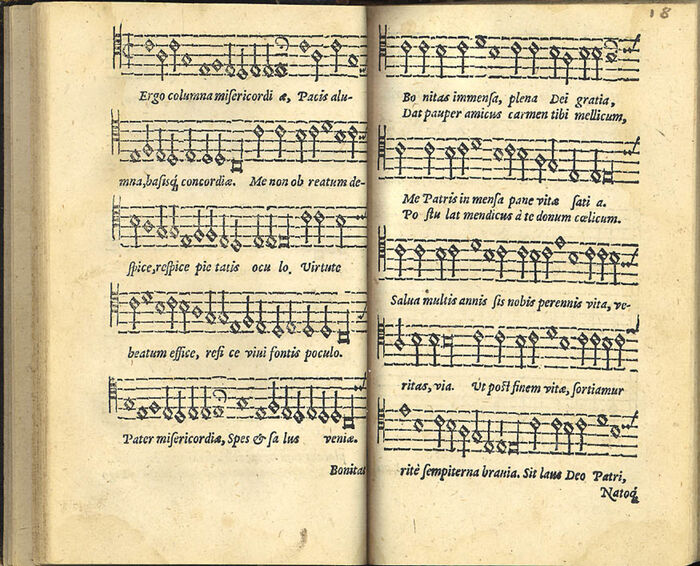 Ergo columna miſericordi æ, Pacis alu-
mna, baſisq́; concordiæ. Me non ob reatum de-
ſpice, reſpice pie tatis ocu lo. Virtute
beatum effice, refi ce viui fontis poculo.
Pater miſericordiæ, Spes & ſa lus veniæ.
Bonitat
18
Bo nitas immenſa, plena Dei gratia,
Dat pauper amicus carmen tibi mellicum,
Me Patris in menſa pane vitæ ſati a.
Po ſtu lat mendicus à te donum cœlicum.
Salua multis annis ſis nobis perennis vita, ve-
ritas, via. Ut poſt finem vitæ, ſortiamur
ritè ſempiterna brauia. Sit laus Deo Patri,
Natoq́;